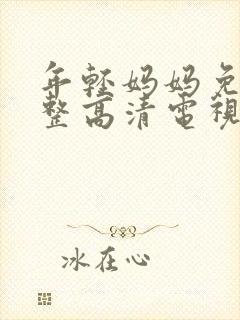 年輕妈妈免
整高清電視
冰在心